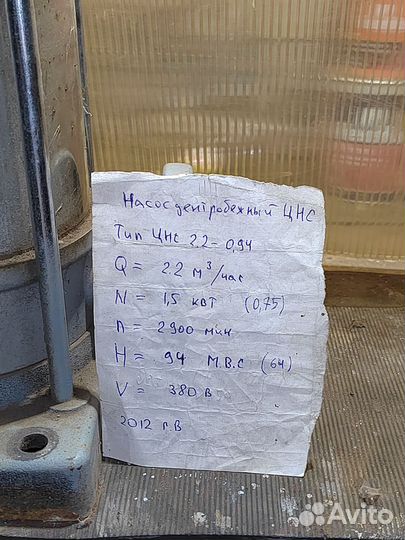 Насос центробежный ЦНС
Тип ЦНС 2.2-0,94
Q = 2.2 м³/час
N = 1,5 квт (0,75)
n = 2900 мин
H = 94 М.В.С (64)
V = 380 В
2012 г.в
Avito